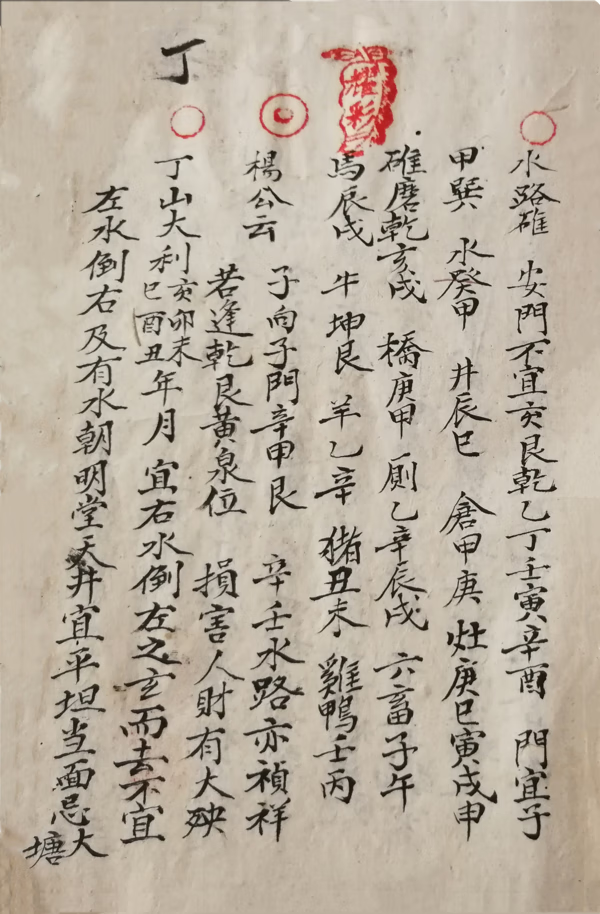 水路碓 安門不宜亥艮乾乙丁壬寅辛酉 門宜子
甲巽 水癸甲 井辰巳 倉甲庚 灶庚巳寅戌申
碓磨乾亥戌 橋庚甲 厠乙辛辰戌 六畜子午
馬辰戌 牛坤艮 羊乙辛 猪丑未 雞鴨壬丙
耀彩
楊公云 子向子門辛甲艮 辛壬水路亦禎祥
若逢乾艮黄泉位 損害人財有大殃
丁
丁山大利亥卯未巳酉丑年月 宜右水倒左之玄而去不宜
左水倒右及有水朝明堂天井宜平坦当面忌大塘